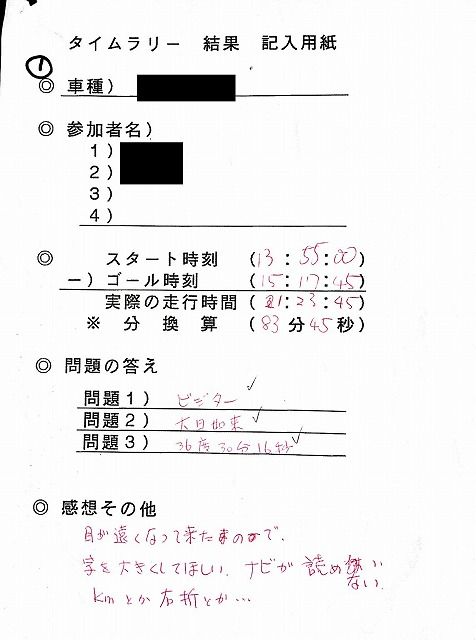 タイムラリー 結果 記入用紙
①
◎ 車種)
◎ 参加者名)
1)
2)
3)
4)
◎ スタート時刻 (13:55:00)
－) ゴール時刻 (15:17:45)
実際の走行時間 (1:23:45)
※ 分 換 算 (83分45秒)
◎ 問題の答え
問題1) ビジター
問題2) 大日如来
問題3) 36度30分16秒
◎ 感想その他
目が遠くなって来たもので、
字を大きくしてほしい、ナビが読めない
kmとか右折とか…